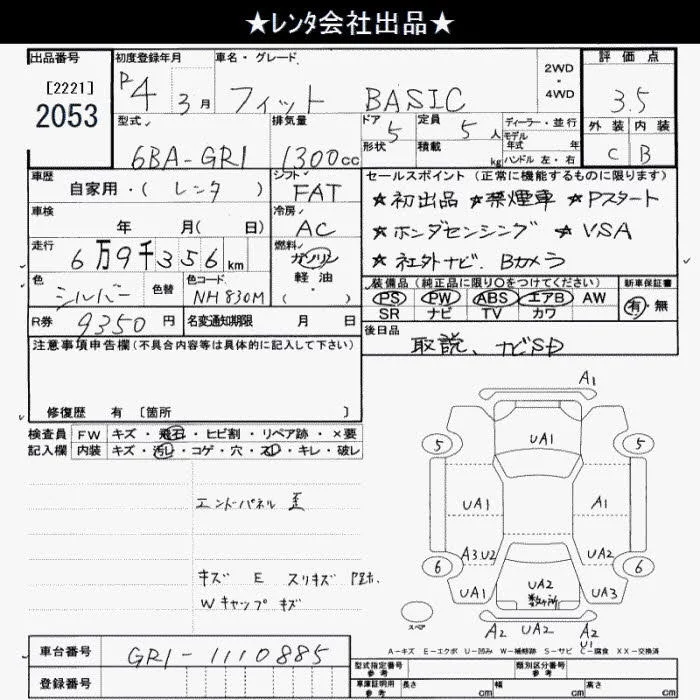 ★レンタ会社出品★
出品番号
[2221]
2053
初度登録年月
R4 3月
車名・グレード
フィット BASIC
2WD
・
4WD
評価点
3.5
外装 内装
C B
型式
6BA-GR1
排気量
1300cc
ドア 5
形状
定員 5人
積載 kg
ディーラー・並行
モデル年式 年
ハンドル 左・右
車歴
自家用・( レンタ )
シフト
FAT
車検
年 月( 日)
冷房
AC
走行
6万9千356km
燃料
ガソリン
軽油
・
( )
色
シルバー
色替
色コード
NH830M
R券 9350円
名変通知期限 月 日
セールスポイント (正常に機能するものに限ります)
★初出品 ★禁煙車 ★Pスタート
★ホンダセンシング ★VSA
★社外ナビ、Bカメラ
装備品 (純正品に限り○をつけてください)
PS PW ABS エアB AW
SR ナビ TV カワ
新車保証書
有・無
後日品
取説、ナビSD
注意事項申告欄(不具合内容等は具体的に記入して下さい)
修復歴 有 〔箇所 〕
検査員 FW キズ・飛石・ヒビ割・リペア跡・×要
記入欄 内装 キズ・汚レ・コゲ・穴・スレ・キレ・破レ
エンドーパネル 歪
キズ E スリキズ
Wキャップ キズ
A1
5 UA1 5
UA1 A1
A3U2 UA2
6 6
UA1 UA2 UA3
数ヶ所
A2 UA2 A2
U1
スペア
A-キズ E-エクボ U-凹み W-補修跡 S-サビ C-腐食 XX-交換済
車台番号 GR1-1110885
登録番号
型式指定番号
参考
類別区分番号
参考
車庫証明用
参考
長さ cm 幅 cm 高さ cm